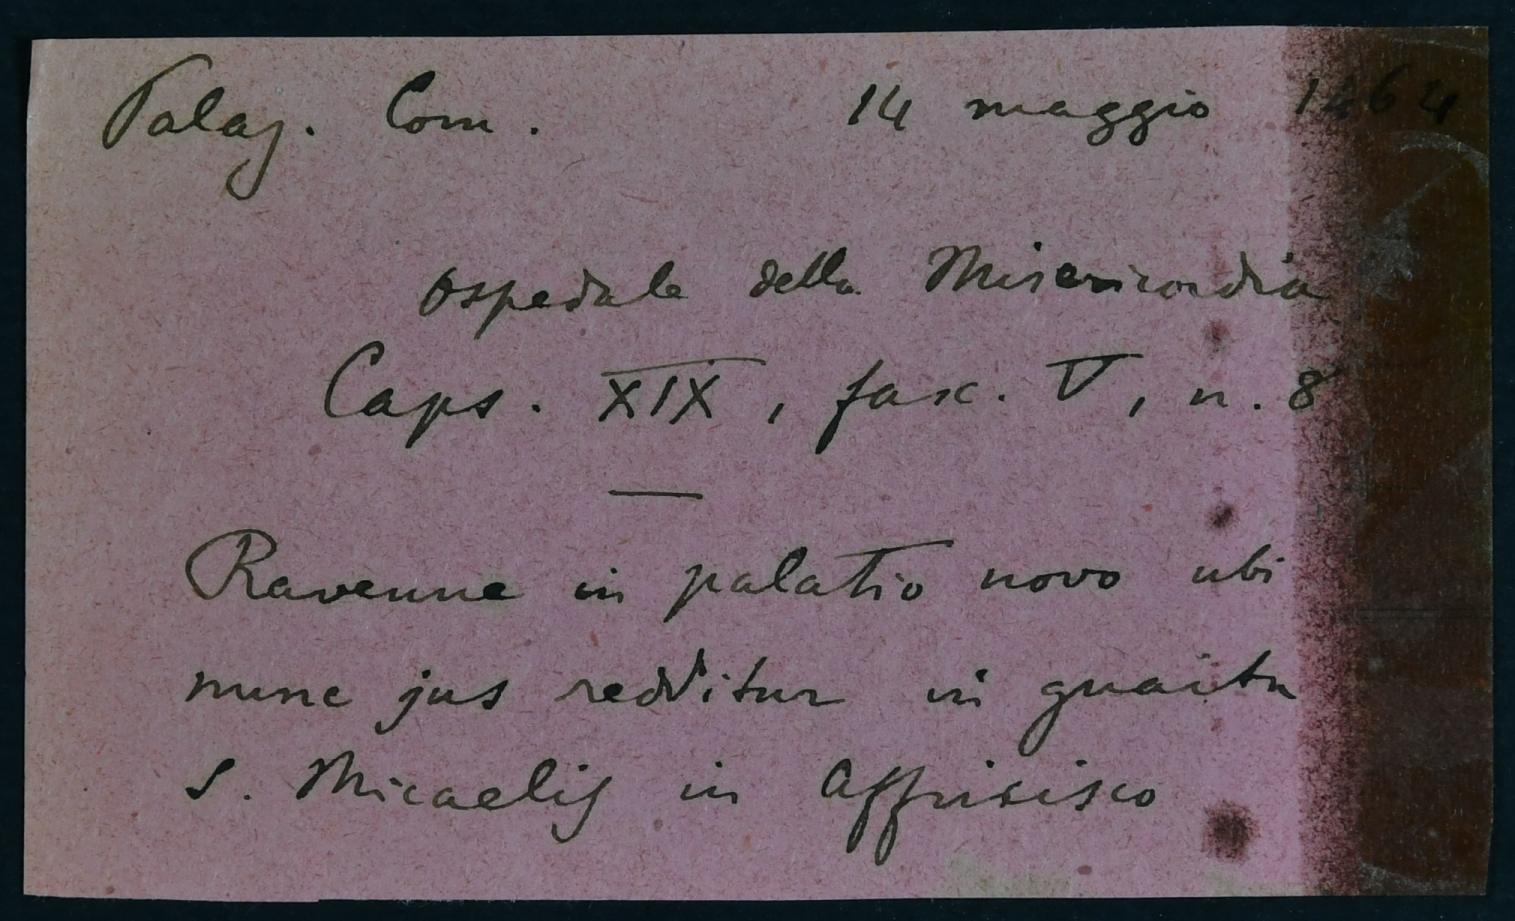 Palaz. Com. 14 maggio 1464
ospedale della Misericordia
Caps. XIX, fasc. V, n. 8
Ravenne in palatio novo ubi
nunc jus redditur in guaita
S. Micaelis in Affrisisco